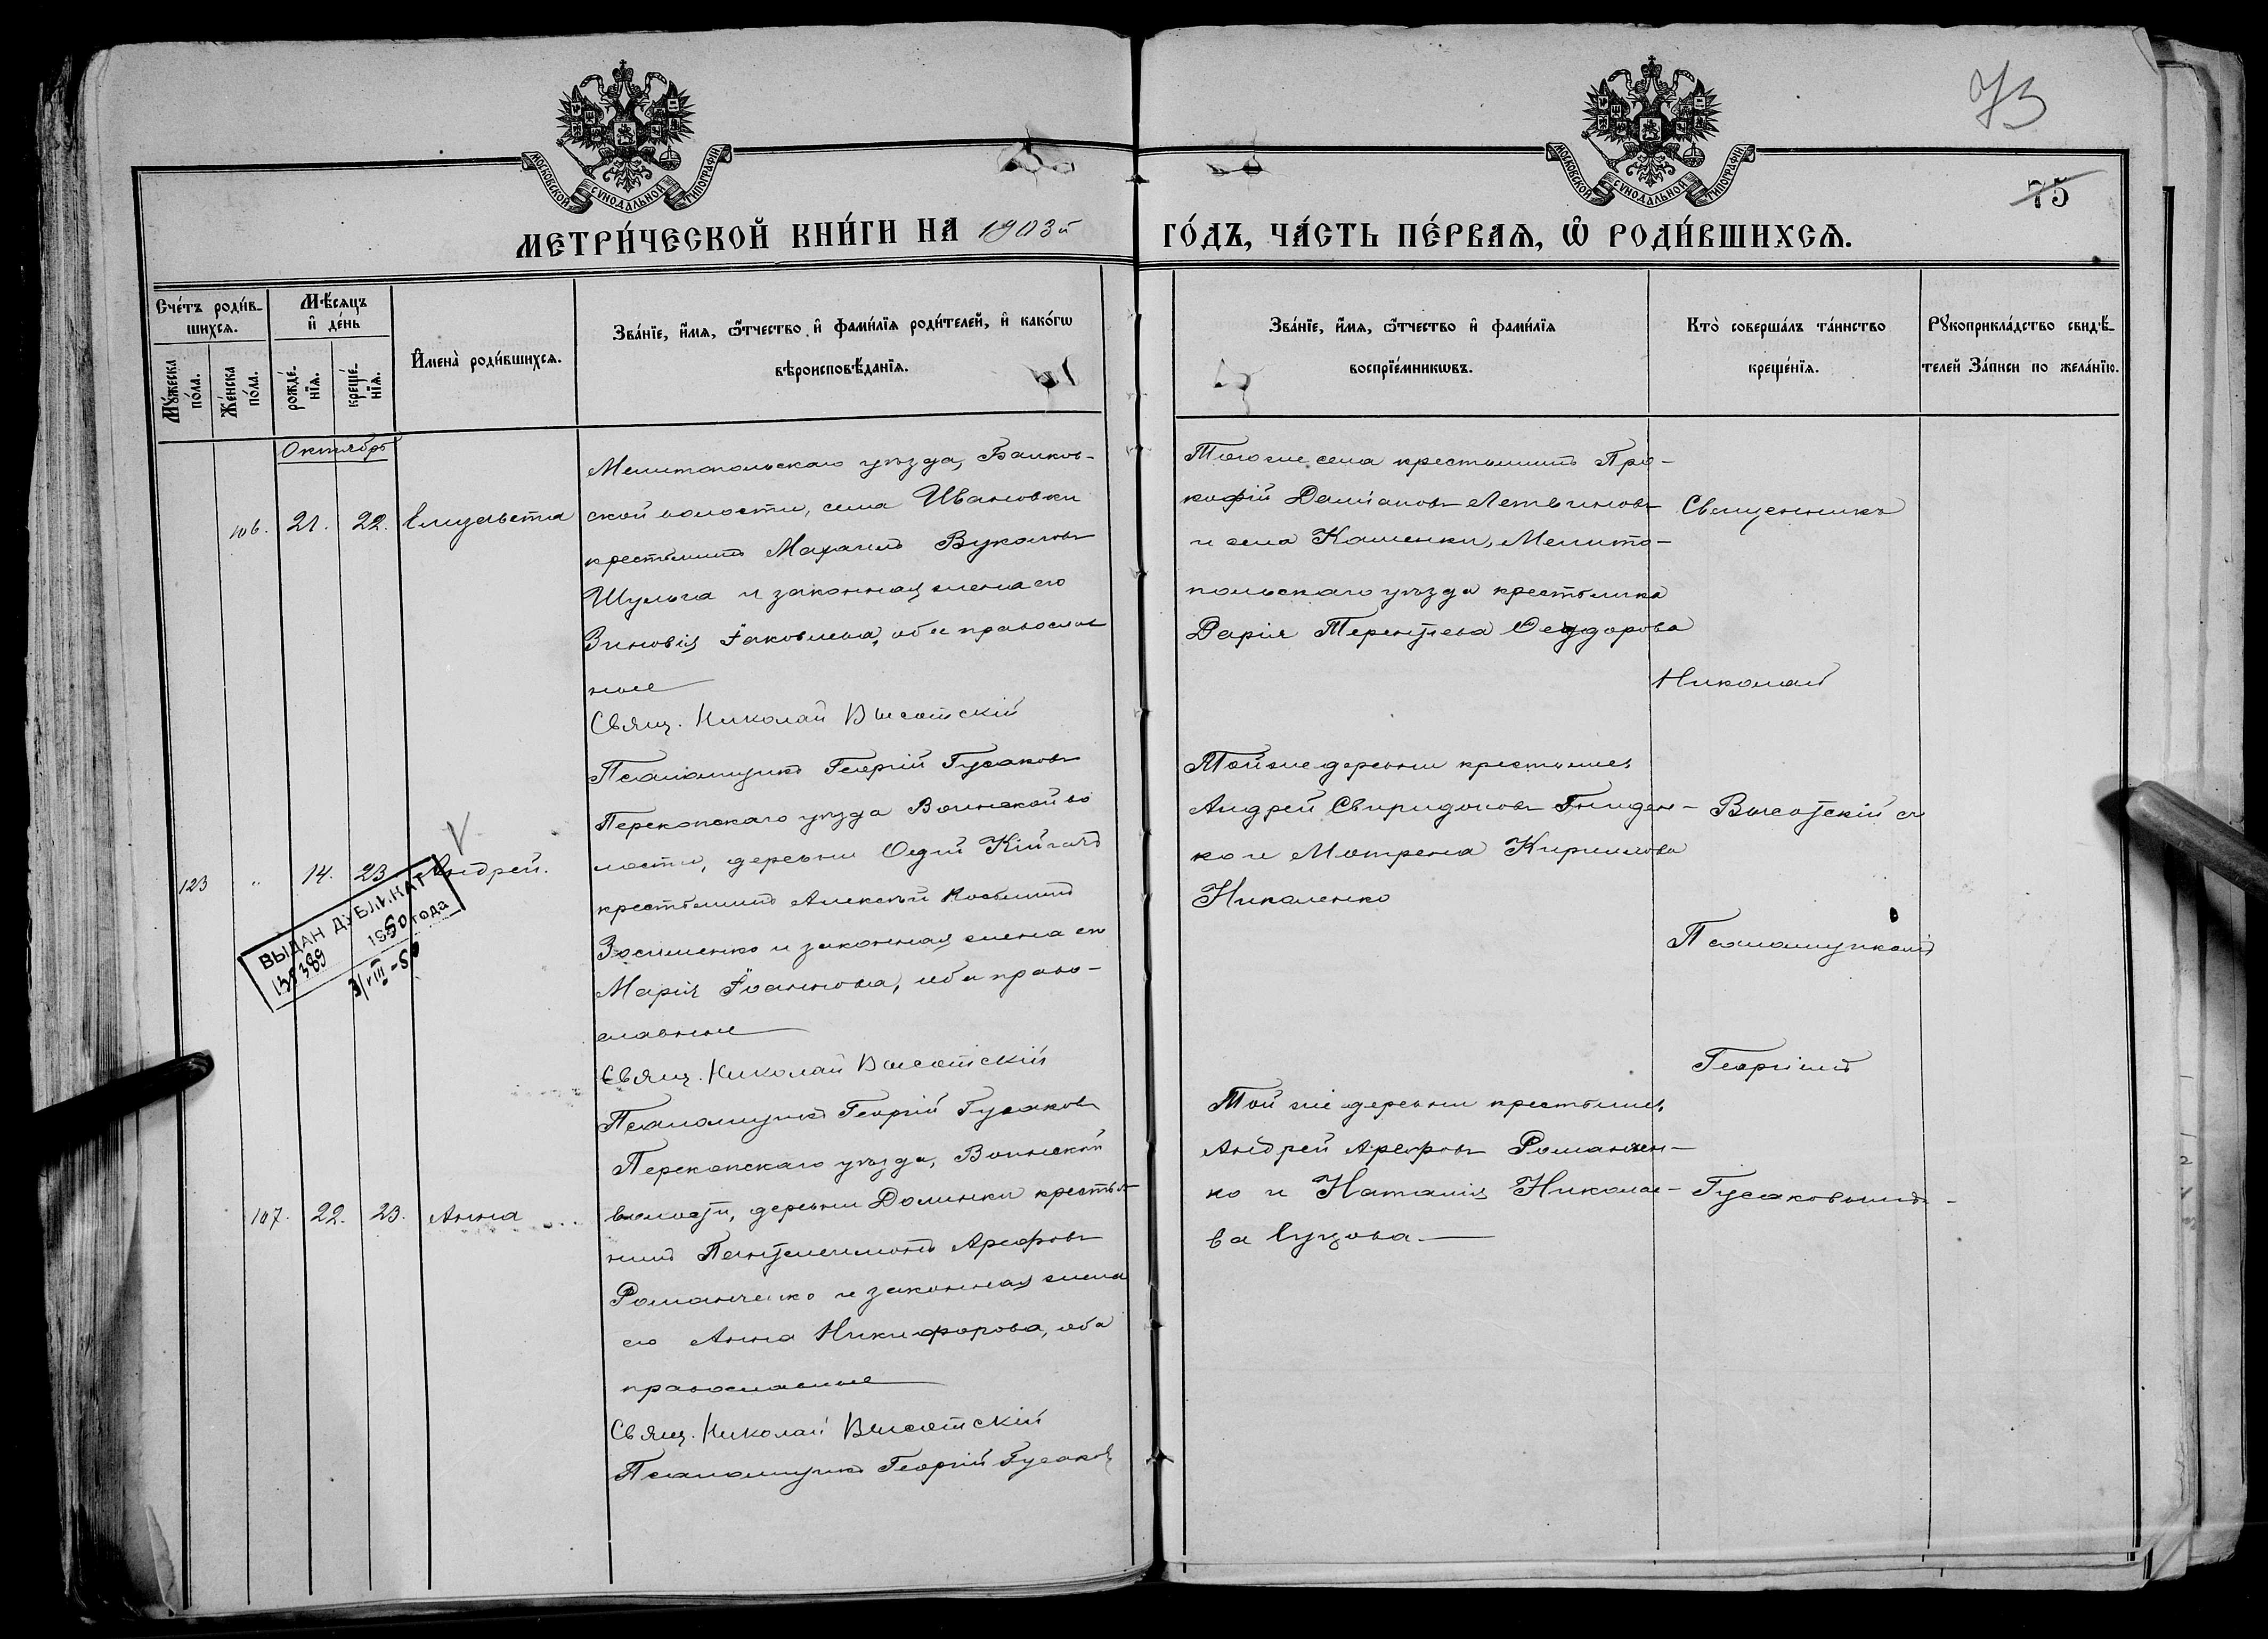 73
75
МОСКОВСКОЙ СѴНОДАЛЬНОЙ ТИПОГРАФІИ
МОСКОВСКОЙ СѴНОДАЛЬНОЙ ТИПОГРАФІИ
МЕТРИ́ЧЕСКОЙ КНИ́ГИ НА 1903й ГО́ДЪ, ЧА́СТЬ ПЕ́РВАѦ, Ѡ҆ РОДИ́ВШИХСѦ.
Сче́тъ роди́в-
шихсѧ.
Мꙋ́жеска по́ла.
Же́нска по́ла.
Мѣ́сѧцъ
и҆ де́нь
рожде́-
нїѧ.
креще́-
нїѧ.
И҆мена̀ роди́вшихсѧ.
Зва́нїе, и҆́мѧ, ѻ҆́тчество и҆ фами́лїѧ роди́телей, и҆ како́гѡ
вѣроисповѣ́данїѧ.
Зва́нїе, и҆́мѧ, ѻ҆́тчество и҆ фами́лїѧ
воспрїе́мникѡвъ.
Кто̀ соверша́лъ та́инство
креще́нїѧ.
Рꙋкоприкла́дство свидѣ́-
телей За́писи по жела́нїю.
Октябрь
106. 21. 22. Елисавета
Мелитопольскаго уѣзда, Балков-
ской волости, села Ивановки
крестьянинъ Вуколовъ
Шульга и законная жена его
Зиновія Іаковлева, оба православ
ные
Свящ. Николай Высотскій
Псаломщикъ Георгій Гусаковъ
Того же села крестьянинъ Про-
кофій Даміановъ Летвиновъ
и села Каменки, Мелито-
польскаго уѣзда крестьянка
Дарія Терентіева Феодорова
123 " 14. 23. Андрей.
ВЫДАН ДУБЛИКАТ
135389 1950 года
31/VIII-50
Перекопскаго уѣзда Воинской во
лости, деревни
крестьянинъ Алексѣй Косьминъ
Зосименко и законная жена его
Марія Іоаннова, оба право-
славные
Свящ. Николай Высотскій
Псаломщикъ Георгій Гусаковъ
Той же деревни крестьяне:
Андрей Свиридоновъ Гниден-
ко и Мотрена Кириллова
Николенко
107. 22. 23. Анна
Перекопскаго уѣзда, Воинской
волости, деревни Долинки крестья-
нинъ Пантелеимонъ Арефовъ
Романченко и законная жена
его Анна Никифорова, оба
православные
Свящ. Николай Высотскій
Псаломщикъ Георгій Гусаковъ
Той же деревни крестьяне:
Андрей Арефовъ Романчен-
ко и Наталія Николае-
ва
Священникъ
Николай
Высотскій съ
Псаломщикомъ
Георгіемъ
Гусаковымъ